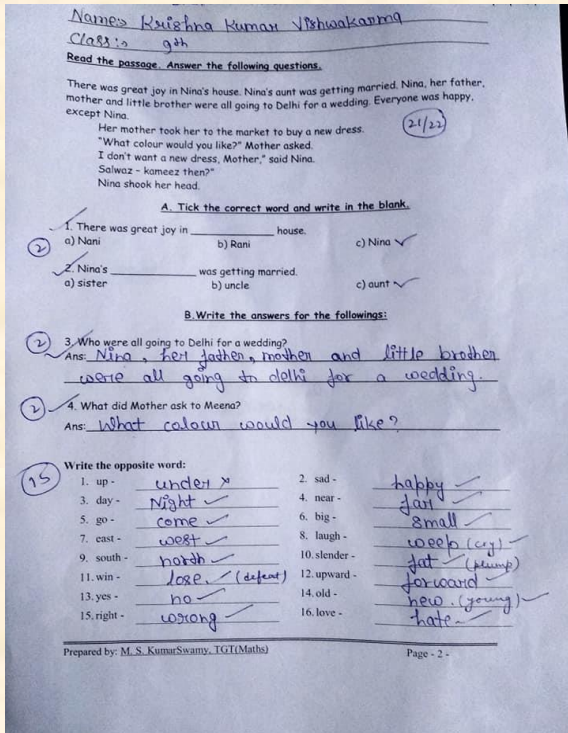 Name:> Krishna Kumar Vishwakarma
Class:> 9th
Read the passage. Answer the following questions.
There was great joy in Nina's house. Nina's aunt was getting married. Nina, her father,
mother and little brother were all going to Delhi for a wedding. Everyone was happy,
except Nina.
Her mother took her to the market to buy a new dress.
21/22
"What colour would you like?" Mother asked.
I don't want a new dress, Mother," said Nina.
Salwaz - kameez then?"
Nina shook her head.
A. Tick the correct word and write in the blank.
1. There was great joy in ______________ house.
2
a) Nani b) Rani c) Nina ✓
2. Nina's ______________ was getting married.
a) sister b) uncle c) aunt ✓
B.Write the answers for the followings:
2 3. Who were all going to Delhi for a wedding?
Ans: Nina, her father, mother and little brother
were all going to delhi for a wedding.
2 4. What did Mother ask to Meena?
Ans: What colour would you like?
15 Write the opposite word:
1. up - under × 2. sad - happy ✓
3. day - Night ✓ 4. near - far ✓
5. go - come ✓ 6. big - small ✓
7. east - west ✓ 8. laugh - weep (cry) ✓
9. south - north ✓ 10. slender - fat ✓ (plump)
11. win - lose. ✓ (defeat) 12. upward - forward ✓
13. yes - no ✓ 14. old - new. (young) ✓
15. right - wrong ✓ 16. love - hate ✓
Prepared by: M. S. KumarSwamy, TGT(Maths) Page - 2 -